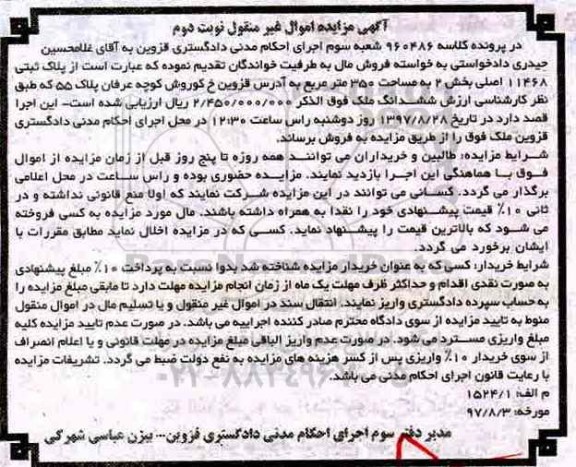 آگهی مزایده اموال غیر منقول نوبت دوم
در پرونده کلاسه ۹۶۰۴۸۶ شعبه سوم اجرای احکام مدنی دادگستری قزوین به آقای غلامحسین
حیدری دادخواستی به خواسته فروش مال به طرفیت خواندگان تقدیم نموده که عبارت است از پلاک ثبتی
۱۱۴۶۸ اصلی بخش ۲ به مساحت ۳۵۰ متر مربع به آدرس قزوین خ کوروش کوچه عرفان پلاک ۵۵ که طبق
نظر کارشناسی ارزش ششدانگ ملک فوق الذکر ۲/۴۵۰/۰۰۰/۰۰۰ ریال ارزیابی شده است- این اجرا
قصد دارد در تاریخ ۱۳۹۷/۸/۲۸ روز دوشنبه راس ساعت ۱۲:۳۰ در محل اجرای احکام مدنی دادگستری
قزوین ملک فوق را از طریق مزایده به فروش برساند.
شرایط مزایده: طالبین و خریداران می توانند همه روزه تا پنج روز قبل از زمان مزایده از اموال
فوق با هماهنگی این اجرا بازدید نمایند. مزایده حضوری بوده و راس ساعت در محل اعلامی
برگذار می گردد. کسانی می توانند در این مزایده شرکت نمایند که اولا منع قانونی نداشته و در
ثانی ۱۰٪ قیمت پیشنهادی خود را نقدا به همراه داشته باشند. مال مورد مزایده به کسی فروخته
می شود که بالاترین قیمت را پیشنهاد نماید. کسی که در مزایده اخلال نماید مطابق مقررات با
ایشان برخورد می گردد.
شرایط خریدار: کسی که به عنوان خریدار مزایده شناخته شد بدوا نسبت به پرداخت ۱۰٪ مبلغ پیشنهادی
به صورت نقدی اقدام و حداکثر ظرف مهلت یک ماه از زمان انجام مزایده مهلت دارد تا مابقی مبلغ مزایده را
به حساب سپرده دادگستری واریز نمایند. انتقال سند در اموال غیر منقول و یا تسلیم مال در اموال منقول
منوط به تایید مزایده از سوی دادگاه محترم صادر کننده اجراییه می باشد. در صورت عدم تایید مزایده کلیه
مبلغ واریزی مسترد می شود. در صورت عدم واریز الباقی مبلغ مزایده در مهلت قانونی و یا اعلام انصراف
از سوی خریدار ۱۰٪ واریزی پس از کسر هزینه های مزایده به نفع دولت ضبط می گردد. تشریفات مزایده
با رعایت قانون اجرای احکام مدنی می باشد.
م الف: ۱۵۲۴/۱
مورخه: ۹۷/۸/۳
مدیر دفتر سوم اجرای احکام مدنی دادگستری قزوین... بیژن عباسی شهرکی